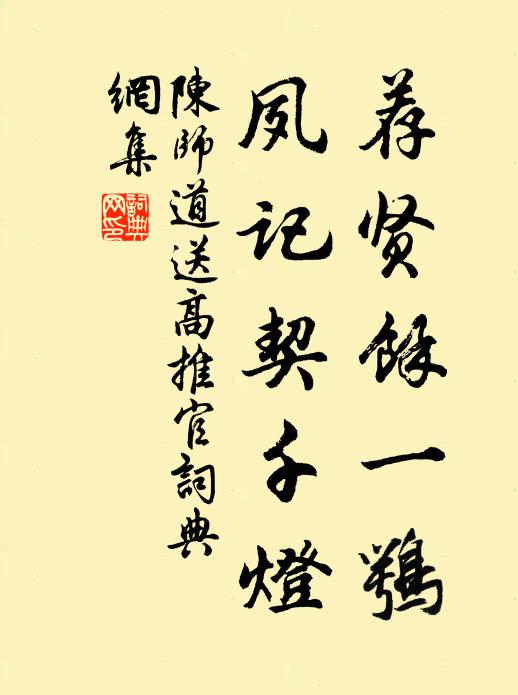 荐贤餘一鶚
夙记契千燈
陳师道送高推官詞典
網集
詞典网印